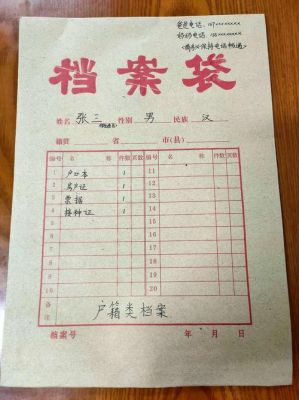 爸爸电话: 137xxxxxxxx
妈妈电话: 135xxxxxxxx
(请务必保持电话畅通)
档案袋
姓名 张三 性别 男 民族 汉
籍贯 省 市(县)
编号 名称 件数 页数 编号 名称 件数 页数
1 户口本 1 11
2 房产证 1 12
3 票据 1 13
4 接种证 1 14
5 15
6 16
7 17
8 18
9 19
10 20
备注 户籍类档案
档案号 年 月 日